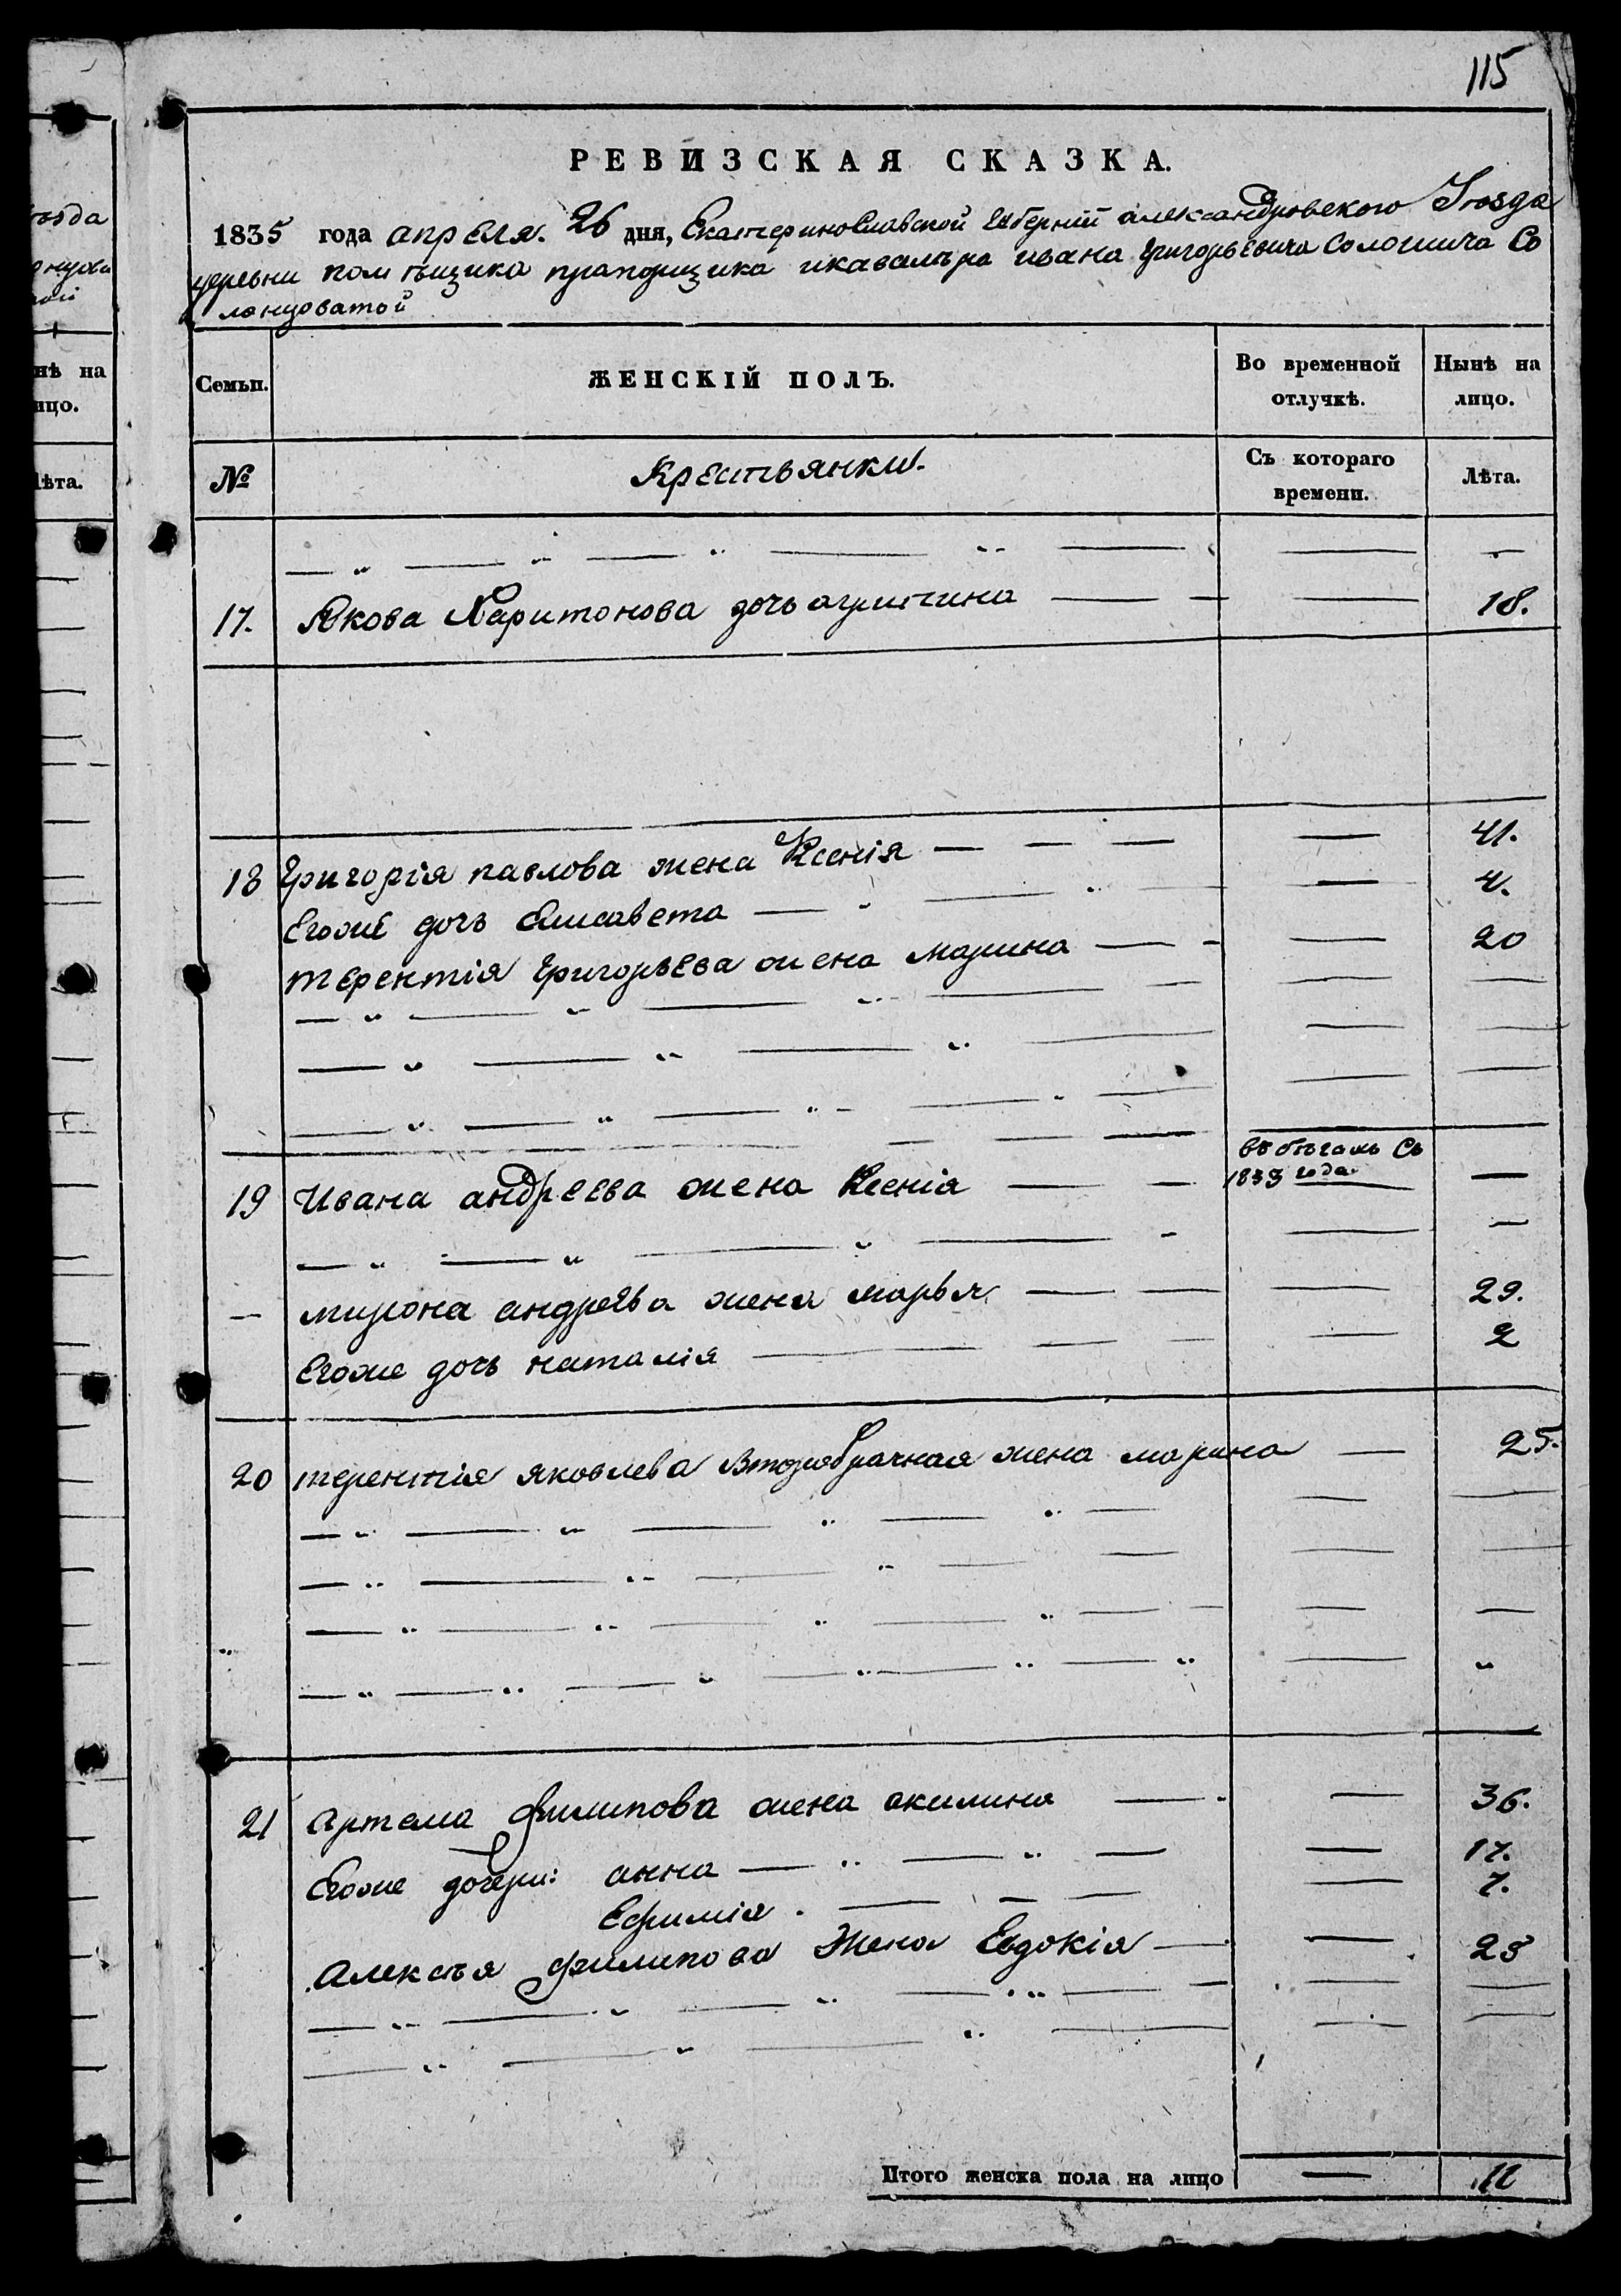 115
РЕВИЗСКАЯ СКАЗКА.
1835 года апреля. 26 дня, Екатеринославской Губерніи александровского Уѣзда
деревни помѣщика прапорщика икавалѣра ивана Григорьевича Со
лонцоватой
Семьи. ЖЕНСКІЙ ПОЛЪ. Во временной отлучкѣ. Нынѣ на лицо.
№ Крестьянки. Съ котораго времени. Лѣта.
17. Якова Харитонова дочь агрипина — — — 18.
18 Григорія павлова жена Ксенія — — — — 41.
Егоже дочь Елисавета — — — 4.
терентія Григорьева жена марина — — 20
въ бѣгахъ Съ
19 Ивана андреева жена Ксенія — — 1833 года. —
— мирона андреева жена марья — — — 29.
Егоже дочь наталія — — — 2
20 терентія яковлева Второбрачная жена марина — 25.
21 Артема филипова жена акилина — — 36.
Егоже дочери: анна — — — — 17.
Ефимія — — — — 7.
Алексѣя филипова Жена Евдокія — — 25
Итого женска пола на лицо — 11
ѣзда
нѣ на
ицо.
ѣта.